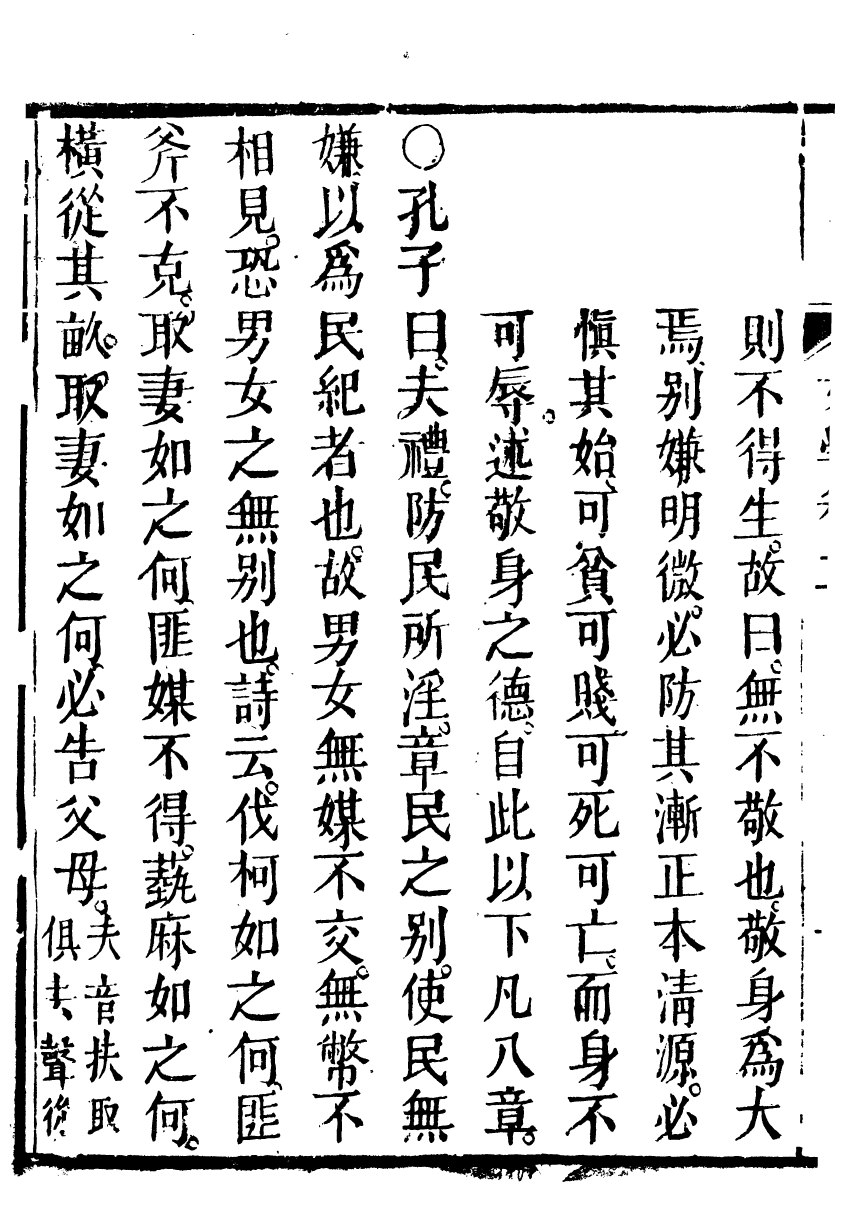 則不得生。故曰。無不敬也。敬身爲大
焉。别嫌明微。必防其漸正本清源。必
愼其始。可貧可賤可死可亡。而身不
可辱。述敬身之德。自此以下凡八章。
○孔子曰。夫禮。防民所淫。章民之别。使民無
嫌以爲民紀者也。故男女無媒不交。無幣不
相見。恐男女之無别也。詩云。伐柯如之何。匪
斧不克。取妻如之何。匪媒不得。蓺麻如之何。
橫從其畝。取妻如之何。必告父母。夫音扶取
俱去聲從